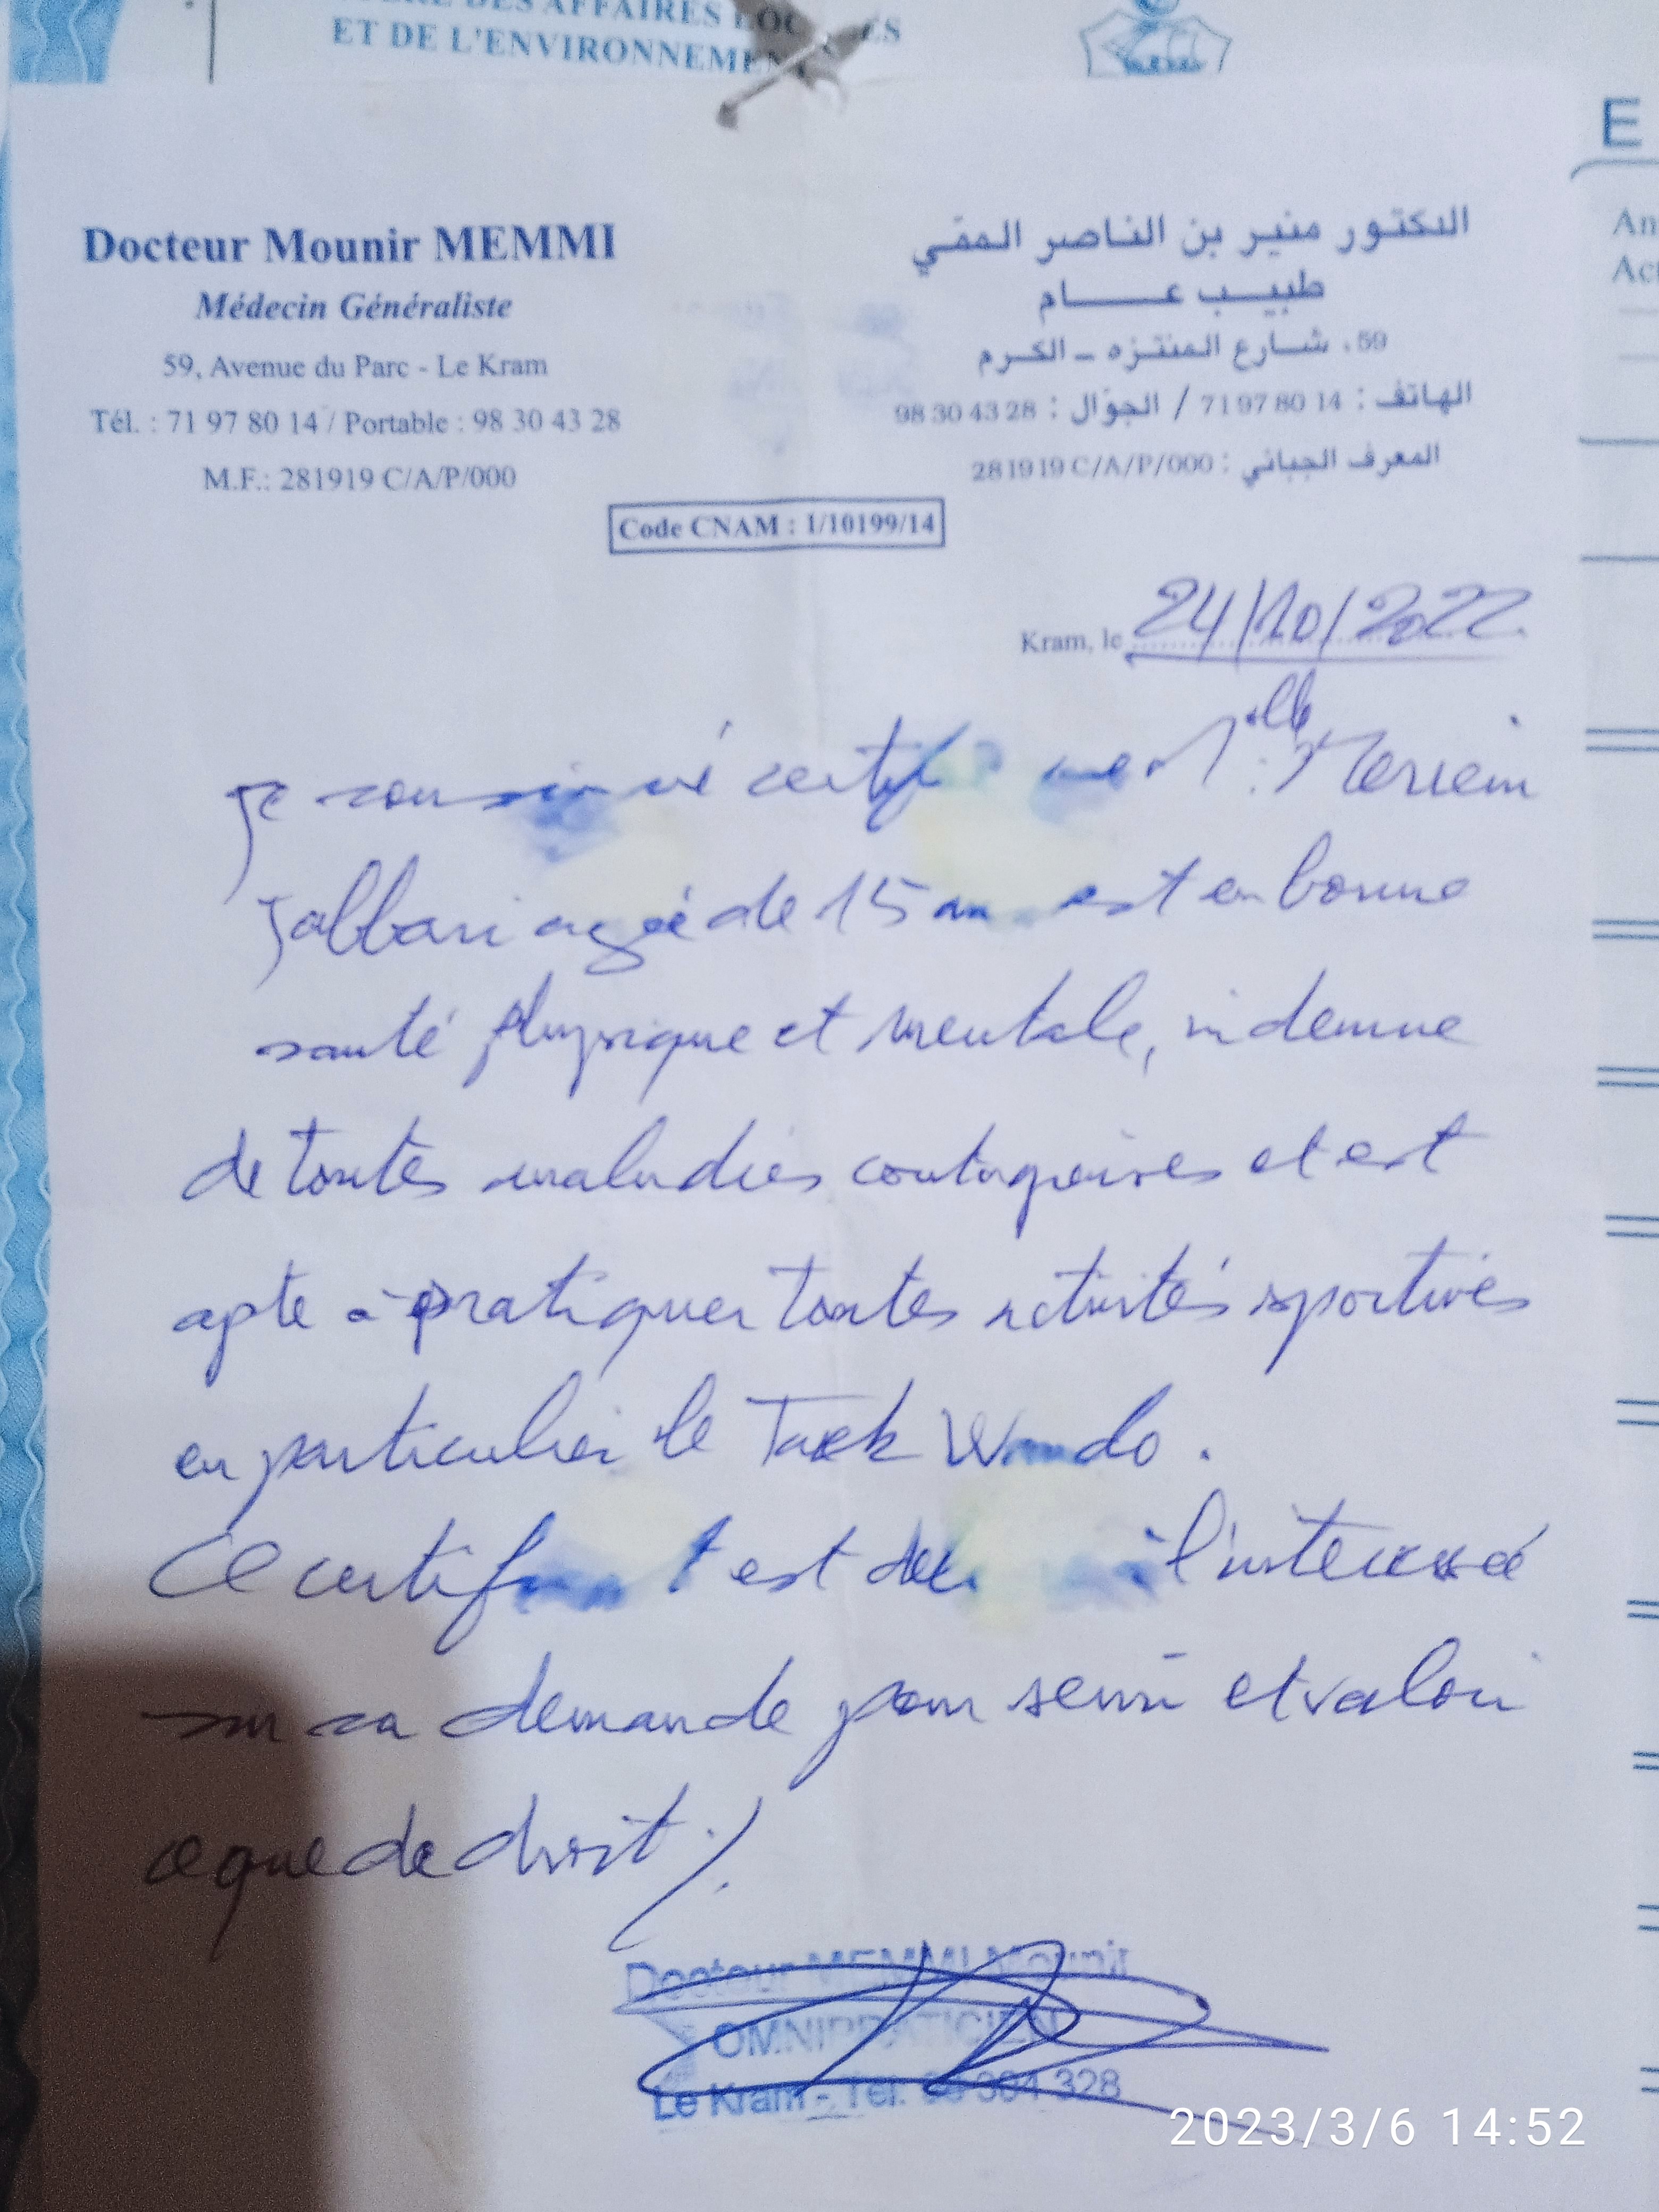 DES AFFAIRES
ET DE L'ENVIRONNEMEN
E
An
Act
Docteur Mounir MEMMI
Médecin Généraliste
59, Avenue du Parc - Le Kram
Tél. : 71 97 80 14 / Portable : 98 30 43 28
M.F.: 281919 C/A/P/000
الدكتور منير بن الناصر الممّي
طبيب عام
59، شارع المنتزه - الكرم
الهاتف : 14 80 97 71 / الجوّال : 28 43 30 98
المعرف الجبائي : 281919 C/A/P/000
Code CNAM : 1/10199/14
Kram, le 24/10/2022
Je soussigné certifie que Mlle : Meriem
Jabbari agée de 15 ans est en bonne
santé physique et mentale, indemne
de toutes maladies contagieuses et est
apte à pratiquer toutes activités sportives
en particulier le Taek Wondo.
Ce certificat est délivré à l'interessée
sur sa demande pour servir et valoir
ce que de droit ./.
Docteur MEMMI Mounir
OMNIPRATICIEN
Le Kram - Tél. 98 304 328
2023/3/6 14:52